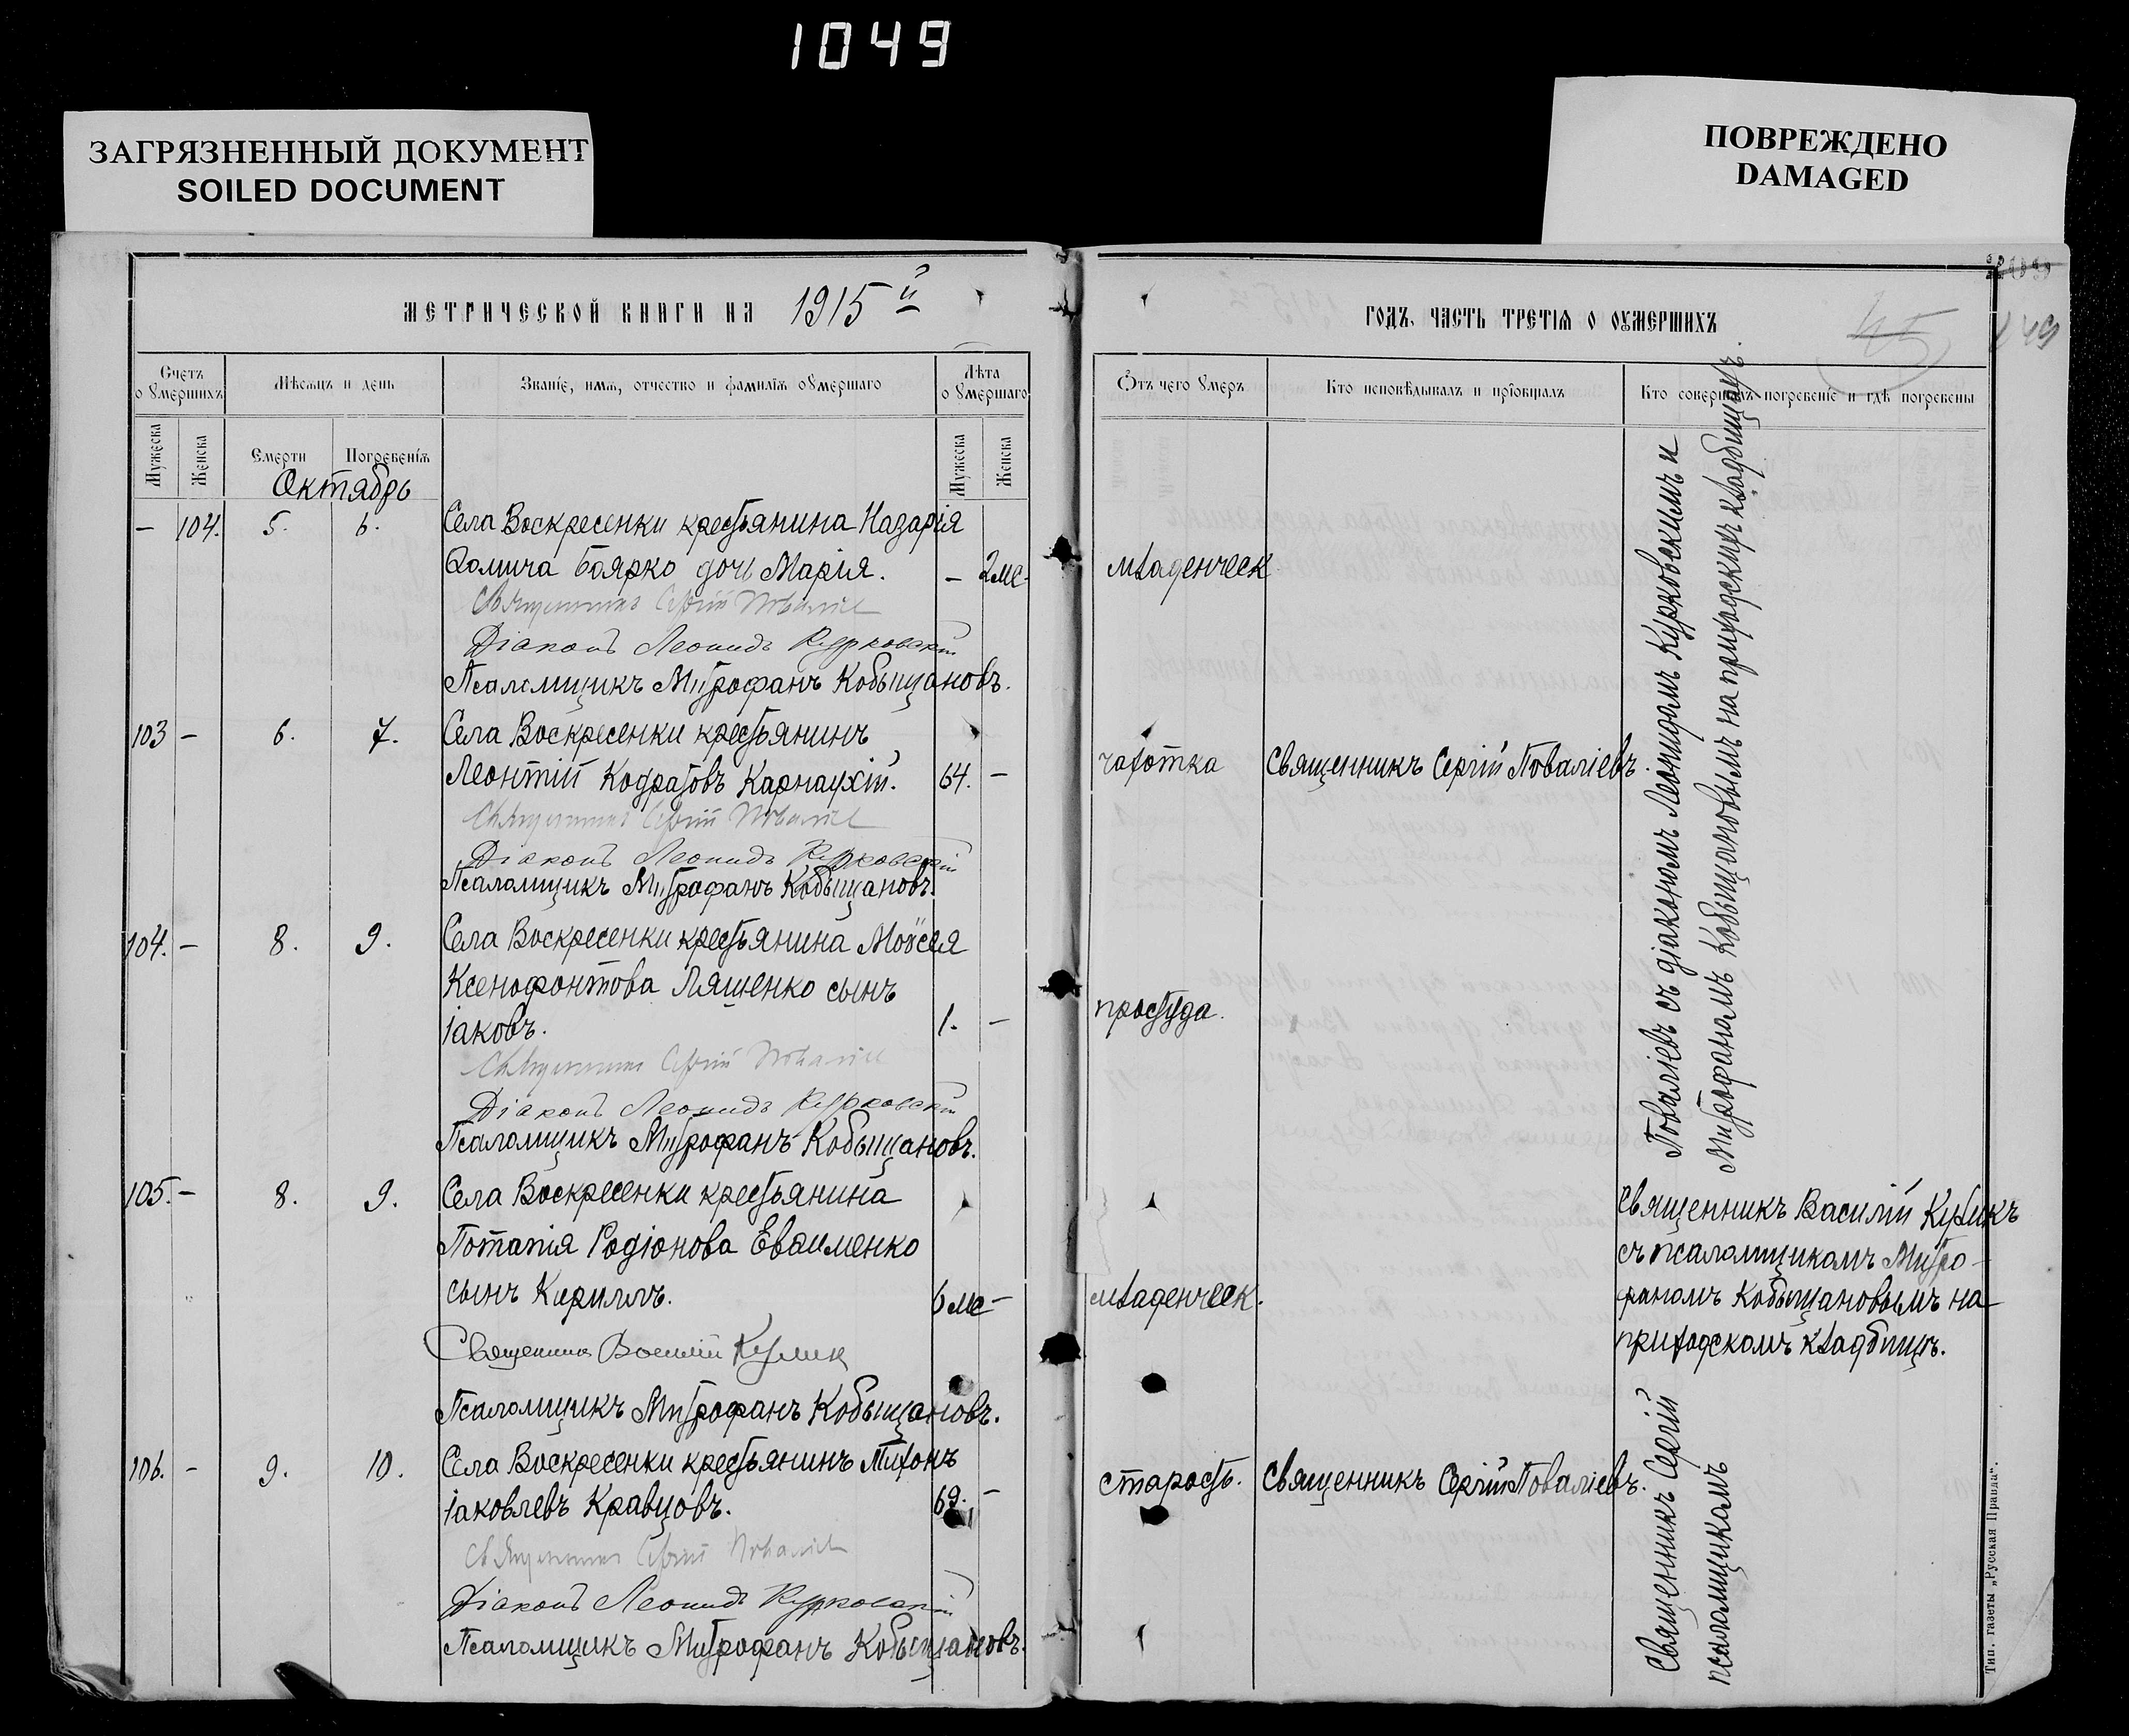 1049
ЗАГРЯЗНЕННЫЙ ДОКУМЕНТ
SOILED DOCUMENT
ПОВРЕЖДЕНО
DAMAGED
МЕТРИЧЕСКОЙ КНИГИ НА 1915й
Счетъ о умершихъ
Мѣсяцъ и день
Званіе, имя, отчество и фамилія умершаго
Лѣта умершаго
Мужеска
Женска
Смерти
Погребенія
Мужеска
Женска
Октябрь
— 104. 5. 6. Села Воскресенки крестьянина Назарія
Фомича Боярко дочь Марія. — 2 ме-
Священникъ Сергій Поваліевъ
Діаконъ Леонидъ Курковскій
Псаломщикъ Митрофанъ Кобыщановъ.
103 — 6. 7. Села Воскресенки крестьянинъ
Леонтій Кодратовъ Карнаухій. 64. —
Священникъ Сергій Поваліевъ
Діаконъ Леонидъ Курковскій
Псаломщикъ Митрофанъ Кобыщановъ.
104. — 8. 9. Села Воскресенки крестьянина Моѵсея
Ксенофонтова Ляшенко сынъ
Іаковъ. 1. —
Священникъ Сергій Поваліевъ
Діаконъ Леонидъ Курковскій
Псаломщикъ Митрофанъ Кобыщановъ.
105. — 8. 9. Села Воскресенки крестьянина
Потапія Родіонова Евдименко
сынъ Кириллъ. 6 ме —
Священникъ Василій Куликъ
Псаломщикъ Митрофанъ Кобыщановъ.
106. — 9. 10. Села Воскресенки крестьянинъ Тихонъ
Іаковлевъ Кравцовъ. 69. —
Священникъ Сергій Поваліевъ
Діаконъ Леонидъ Курковскій
Псаломщикъ Митрофанъ Кобыщановъ.
ГОДЪ. ЧАСТЬ ТРЕТІЯ О УМЕРШИХЪ
45
Отъ чего умеръ
Кто исповѣдывалъ и пріобщалъ
Кто совершалъ погребеніе и гдѣ погребены
младенческ
чахотка Священникъ Сергій Поваліевъ.
простуда.
младенческ.
старость. Священникъ Сергій Поваліевъ.
Священникъ Сергій
Поваліевъ съ діакономъ Леонидомъ Курковскимъ и
псаломщикомъ
Митрофаномъ Кобыщановымъ на приходскихъ кладбищахъ.
Священникъ Василій Куликъ
съ псаломщикомъ Митро-
фаномъ Кобыщановымъ на
приходскомъ кладбищѣ.
Тип. газеты „Русская Правда“.